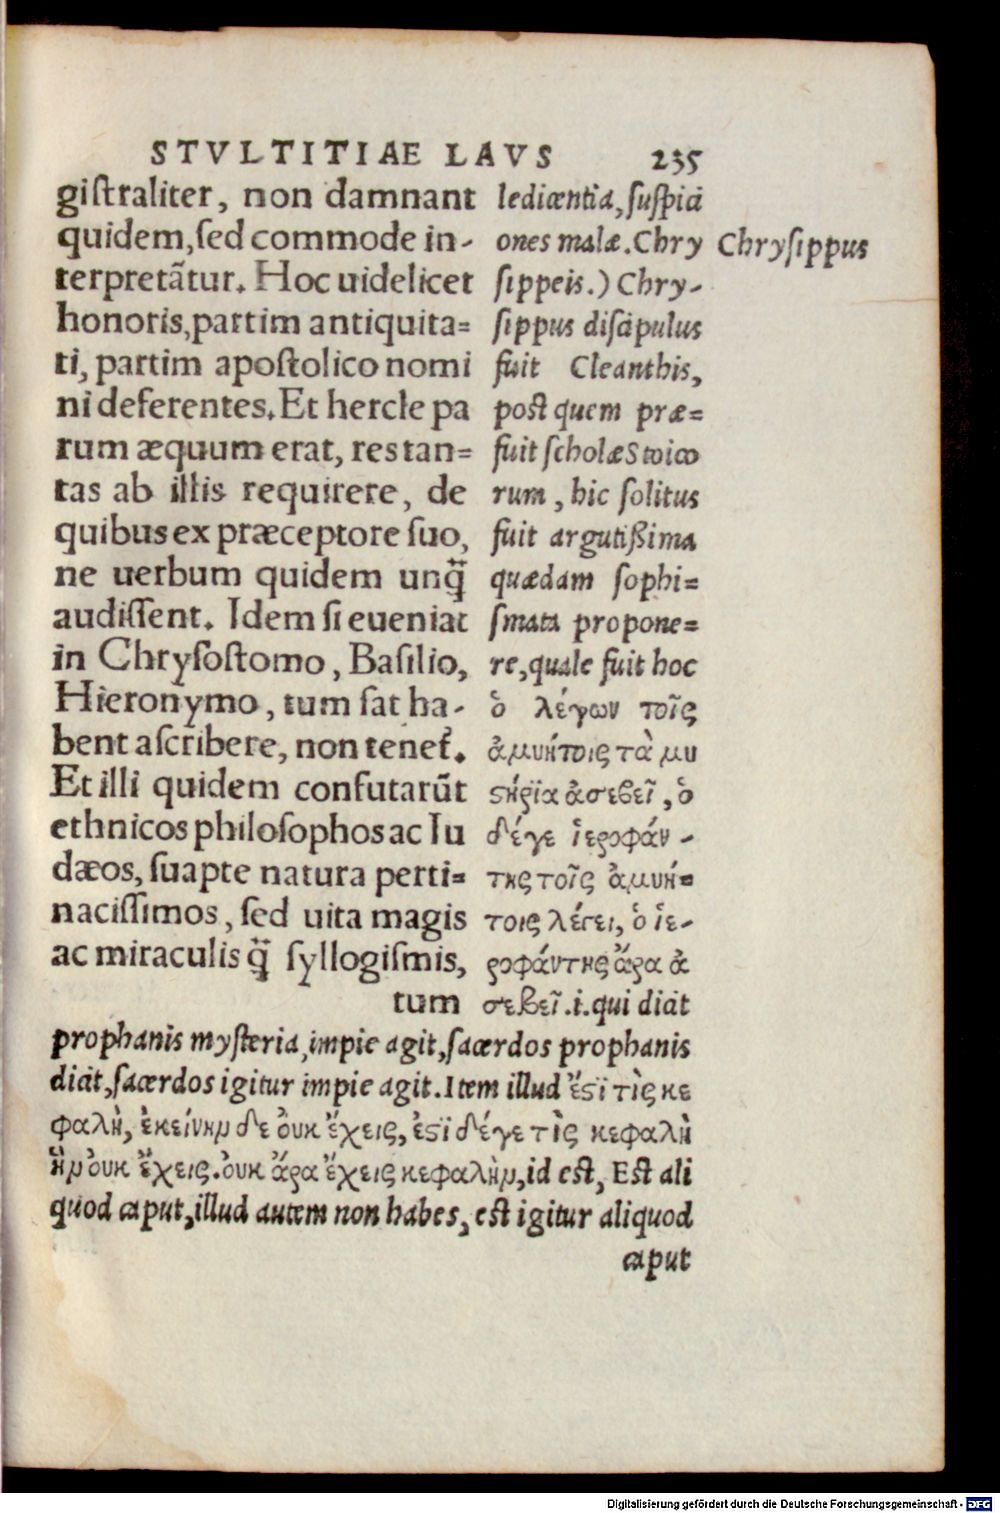 STVLTITIAE LAVS 235
gistraliter, non damnant
quidem, sed commode in-
terpretãtur. Hoc uidelicet
honoris, partim antiquita=
ti, partim apostolico nomi
ni deferentes. Et hercle pa
rum æquum erat, res tan=
tas ab illis requirere, de
quibus ex præceptore suo,
ne uerbum quidem unq̃
audissent. Idem si eueniat
in Chrysostomo, Basilio,
Hieronymo, tum sat ha-
bent ascribere, non tenet̃.
Et illi quidem confutarũt
ethnicos philosophos ac Iu
dæos, suapte natura perti=
nacissimos, sed uita magis
ac miraculis q̃ syllogismis,
tum
ledicentia, suspici
ones malæ. Chry
sippeis.) Chry-
sippus discipulus
fuit Cleanthis,
post quem præ=
fuit scholæ Stoico
rum, hic solitus
fuit argutißima
quædam sophi=
smata propone=
re, quale fuit hoc
ὁ λέγων τοῖς
ἀμυήτοις τὰ μυ
ϛήρια ἀσεβεῖ, ὁ
δέγε ἱεροφάν-
της τοῖς ἀμυή=
τοις λέγει, ὁ ἱε-
ροφάντης ἄρα ἀ
σεβεῖ .i. qui dicit
Chrysippus
prophanis mysteria, impie agit, sacerdos prophanis
dicit, sacerdos igitur impie agit. Item illud ἔϛι τὶς κε
φαλὴ, ἐκείνην δε ὀυκ ἔχεις, ἐϛι δέγε τὶς κεφαλὴ
ἣν ὀυκ ἔχεις. ὀυκ ἄρα ἔχεις κεφαλὴν, id est, Est ali
quod caput, illud autem non habes, est igitur aliquod
caput
Digitalisierung gefördert durch die Deutsche Forschungsgemeinschaft - DFG